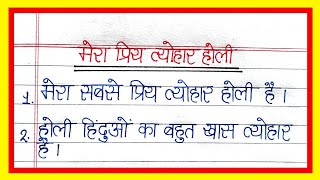 मेरा प्रिय त्योहार होली
1. मेरा सबसे प्रिय त्योहार होली है ।
2. होली हिंदुओं का बहुत खास त्योहार
है ।